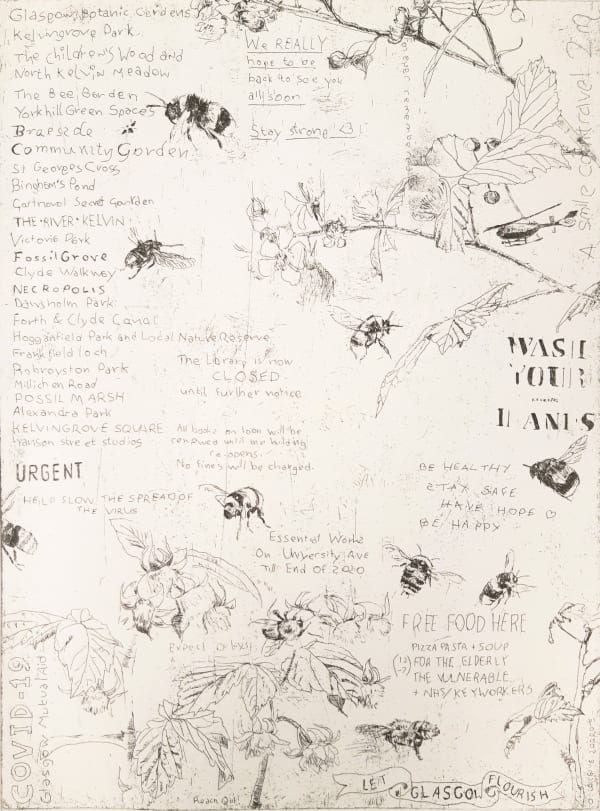 Glasgow Botanic Gardens
Kelvingrove Park
The Children's Wood and
North Kelvin Meadow
The Bee Garden
Yorkhill Green Spaces
Braeside
Community Garden
St Georges Cross
Bingham's Pond
Gartnavel Secret Garden
THE RIVER KELVIN
Victoria Park
Fossil Grove
Clyde Walkway
NECROPOLIS
Dawsholm Park
Forth & Clyde Canal
Hogganfield Park and Local Nature Reserve
Frankfield Loch
Robroyston Park
Millichen Road
POSSIL MARSH
Alexandra Park
KELVINGROVE SQUARE
hanson street studios
We REALLY
hope to be
back to see you
all soon
Stay strong <3!
A smile can travel 2m
The Library is now
CLOSED
until further notice
All books on loan will be
renewed until the building
re-opens.
No fines will be charged.
WASH
YOUR
HANDS
URGENT
HELP SLOW THE SPREAD OF
THE VIRUS
BE HEALTHY
STAY SAFE
HAVE HOPE ♡
BE HAPPY
Essential Works
On University Ave
Till End Of 2020
FREE FOOD HERE
PIZZA PASTA + SOUP
FOR THE ELDERLY
THE VULNERABLE
+ NHS/KEYWORKERS
Expect Delays
COVID-19
Glasgow Mutual Aid
Reach Out!
LET GLASGOW FLOURISH